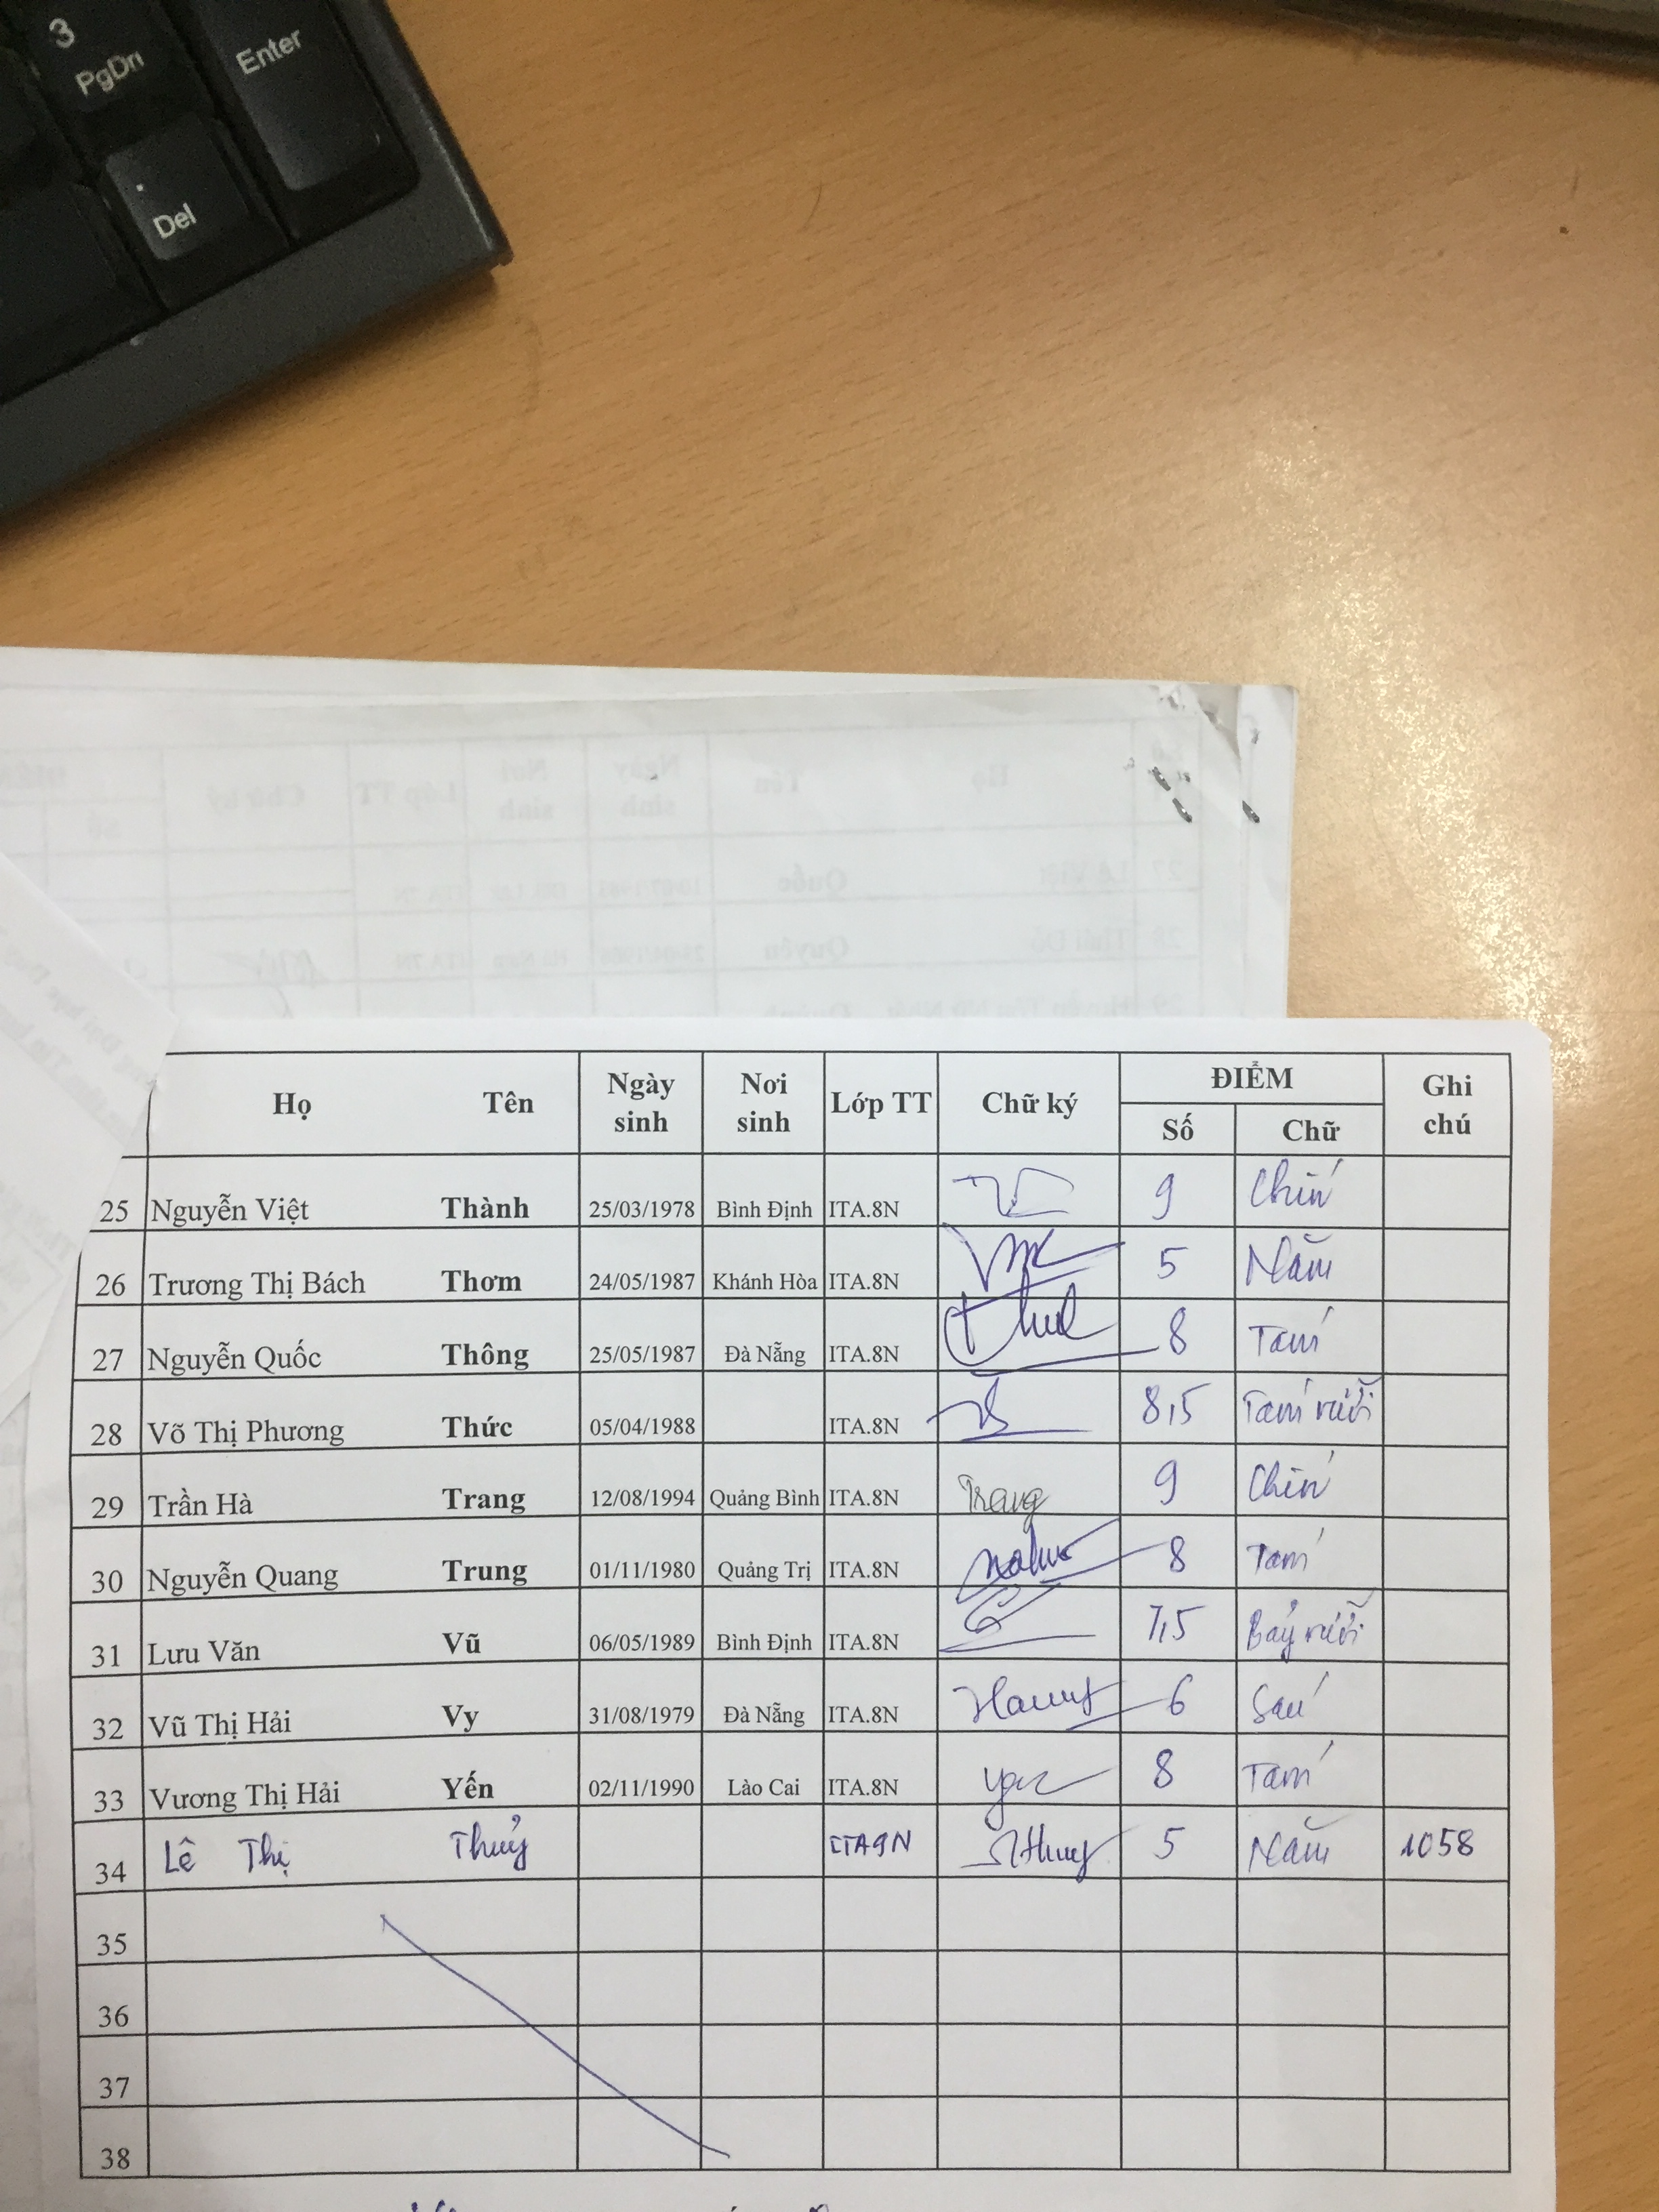 3
PgDn
Enter
.
Del
Họ Tên Ngày sinh Nơi sinh Lớp TT Chữ ký ĐIỂM Ghi chú
Số Chữ
25 Nguyễn Việt Thành 25/03/1978 Bình Định ITA.8N 9 Chín
26 Trương Thị Bách Thơm 24/05/1987 Khánh Hòa ITA.8N 5 Năm
27 Nguyễn Quốc Thông 25/05/1987 Đà Nẵng ITA.8N 8 Tám
28 Võ Thị Phương Thức 05/04/1988 ITA.8N 8,5 Tám rưỡi
29 Trần Hà Trang 12/08/1994 Quảng Bình ITA.8N Trang 9 Chín
30 Nguyễn Quang Trung 01/11/1980 Quảng Trị ITA.8N 8 Tám
31 Lưu Văn Vũ 06/05/1989 Bình Định ITA.8N 7,5 Bảy rưỡi
32 Vũ Thị Hải Vy 31/08/1979 Đà Nẵng ITA.8N 6 Sáu
33 Vương Thị Hải Yến 02/11/1990 Lào Cai ITA.8N 8 Tám
34 Lê Thị Thuỷ ITA9N 5 Năm 1058
35
36
37
38